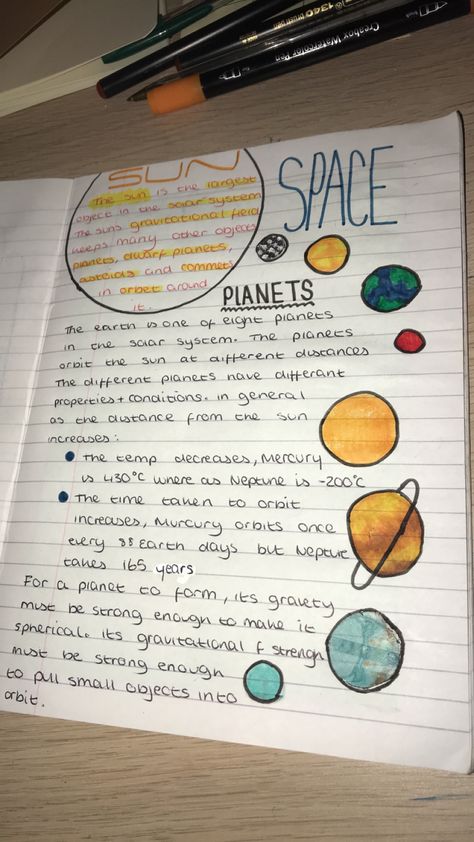 1340
Creabox Watercolor Pen
SUN
The sun is the largest
object in the solar system
The suns gravitational field
keeps many other objects
planets, dwarf planets,
asteriods and commets
in orbet around
it.
SPACE
PLANETS
The earth is one of eight planets
in the solar system. The planets
orbit the sun at different distances
The different planets have differant
properties + conditions. in general
as the distance from the sun
increases:
• The temp decreases, Mercury
is 430°C where as Neptune is -200°C
• The time taken to orbit
increases, Murcury orbits once
every 88 Earth days but Neptune
takes 165 years
For a planet to form, its gravity
must be strong enough to make it
spherical. its gravitational f strengh
must be strong enough
to pull small objects into
orbit.